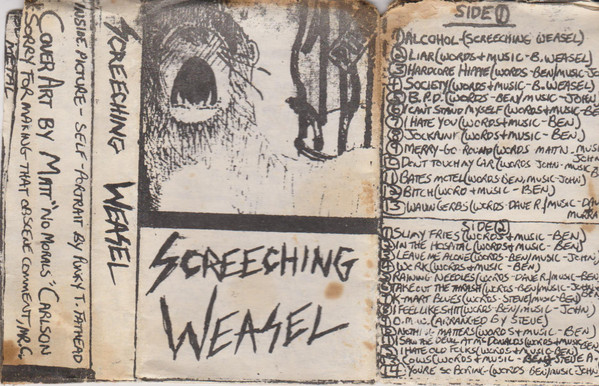 COVER ART BY MATT "NO MORALS" CARLSON
SORRY FOR MAKING THAT OBSCENE COMMENT, MR. C,
METAL
INSIDE PICTURE - SELF-PORTRAIT BY PUNKY T. FATHEAD
SCREECHING WEASEL
SCREECHING
WEASEL
SIDE ①
① ALCOHOL (SCREECHING WEASEL)
② LIAR (WORDS + MUSIC - B. WEASEL)
③ HARDCORE HIPPIE (WORDS - BEN/MUSIC - JOHN
④ SOCIETY (WORDS + MUSIC - B. WEASEL)
⑤ B.P.D. (WORDS - BEN/MUSIC - JOHN)
⑥ I CAN'T STAND MYSELF (WORDS + MUSIC - BE
⑦ I HATE YOU (WORDS + MUSIC - BEN)
⑧ JOCKPUNK (WORDS + MUSIC - BEN)
⑨ MERRY-GO-ROUND (WORDS MATT N. MUSIC
JOHN
⑩ DON'T TOUCH MY CAR (WORDS JOHN - MUSIC
⑪ BATES MOTEL (WORDS BEN/MUSIC - JOHN)
⑫ BITCH (WORD + MUSIC - BEN)
⑬ (WORDS - DAVE R./MUSIC - DAVE
SIDE ②
① SLIMY FRIES (WORDS + MUSIC - BEN)
② IN THE HOSPITAL (WORDS + MUSIC - BEN)
③ LEAVE ME ALONE (WORDS - BEN/MUSIC - JOHN
④ WORK (WORDS + MUSIC - BEN)
⑤ RAINING NEEDLES (WORDS - DAVE R./MUSIC - BEN
⑥ TAKE OUT THE TRASH (WORDS - BEN/MUSIC - JOHN
⑦ K-MART BLUES (WORDS - STEVE/MUSIC - BEN
⑧ I FEEL LIKE SHIT (WORDS - BEN/MUSIC - JOHN)
⑨ D.M.W. (ARRANGED BY STEVE)
⑩ NOTHING MATTERS (WORDS + MUSIC - BEN)
⑪ I SAW THE DEVIL AT McDONALDS (WORDS + MUSIC
⑫ I HATE OLD FOLKS (WORDS + MUSIC - BEN)
COWS (WORDS + MUSIC - BEN + STEVE
14 YOU'RE SO BORING - (WORDS BEN/MUSIC JOHN